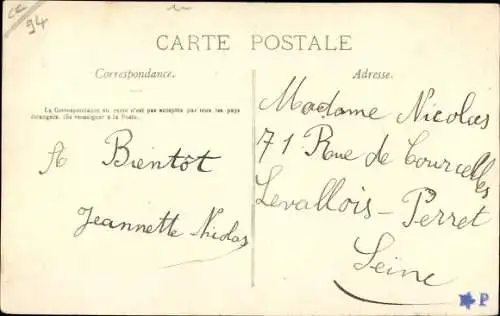 cc
94
CARTE POSTALE
Correspondance.
La Correspondance au recto n'est pas acceptée par tous les pays
étrangers. (Se renseigner à la Poste).
A Bientôt
Jeannette Nicolas
Adresse.
Madame Nicolas
71 Rue de Courcelles
Levallois-Perret
Seine
P